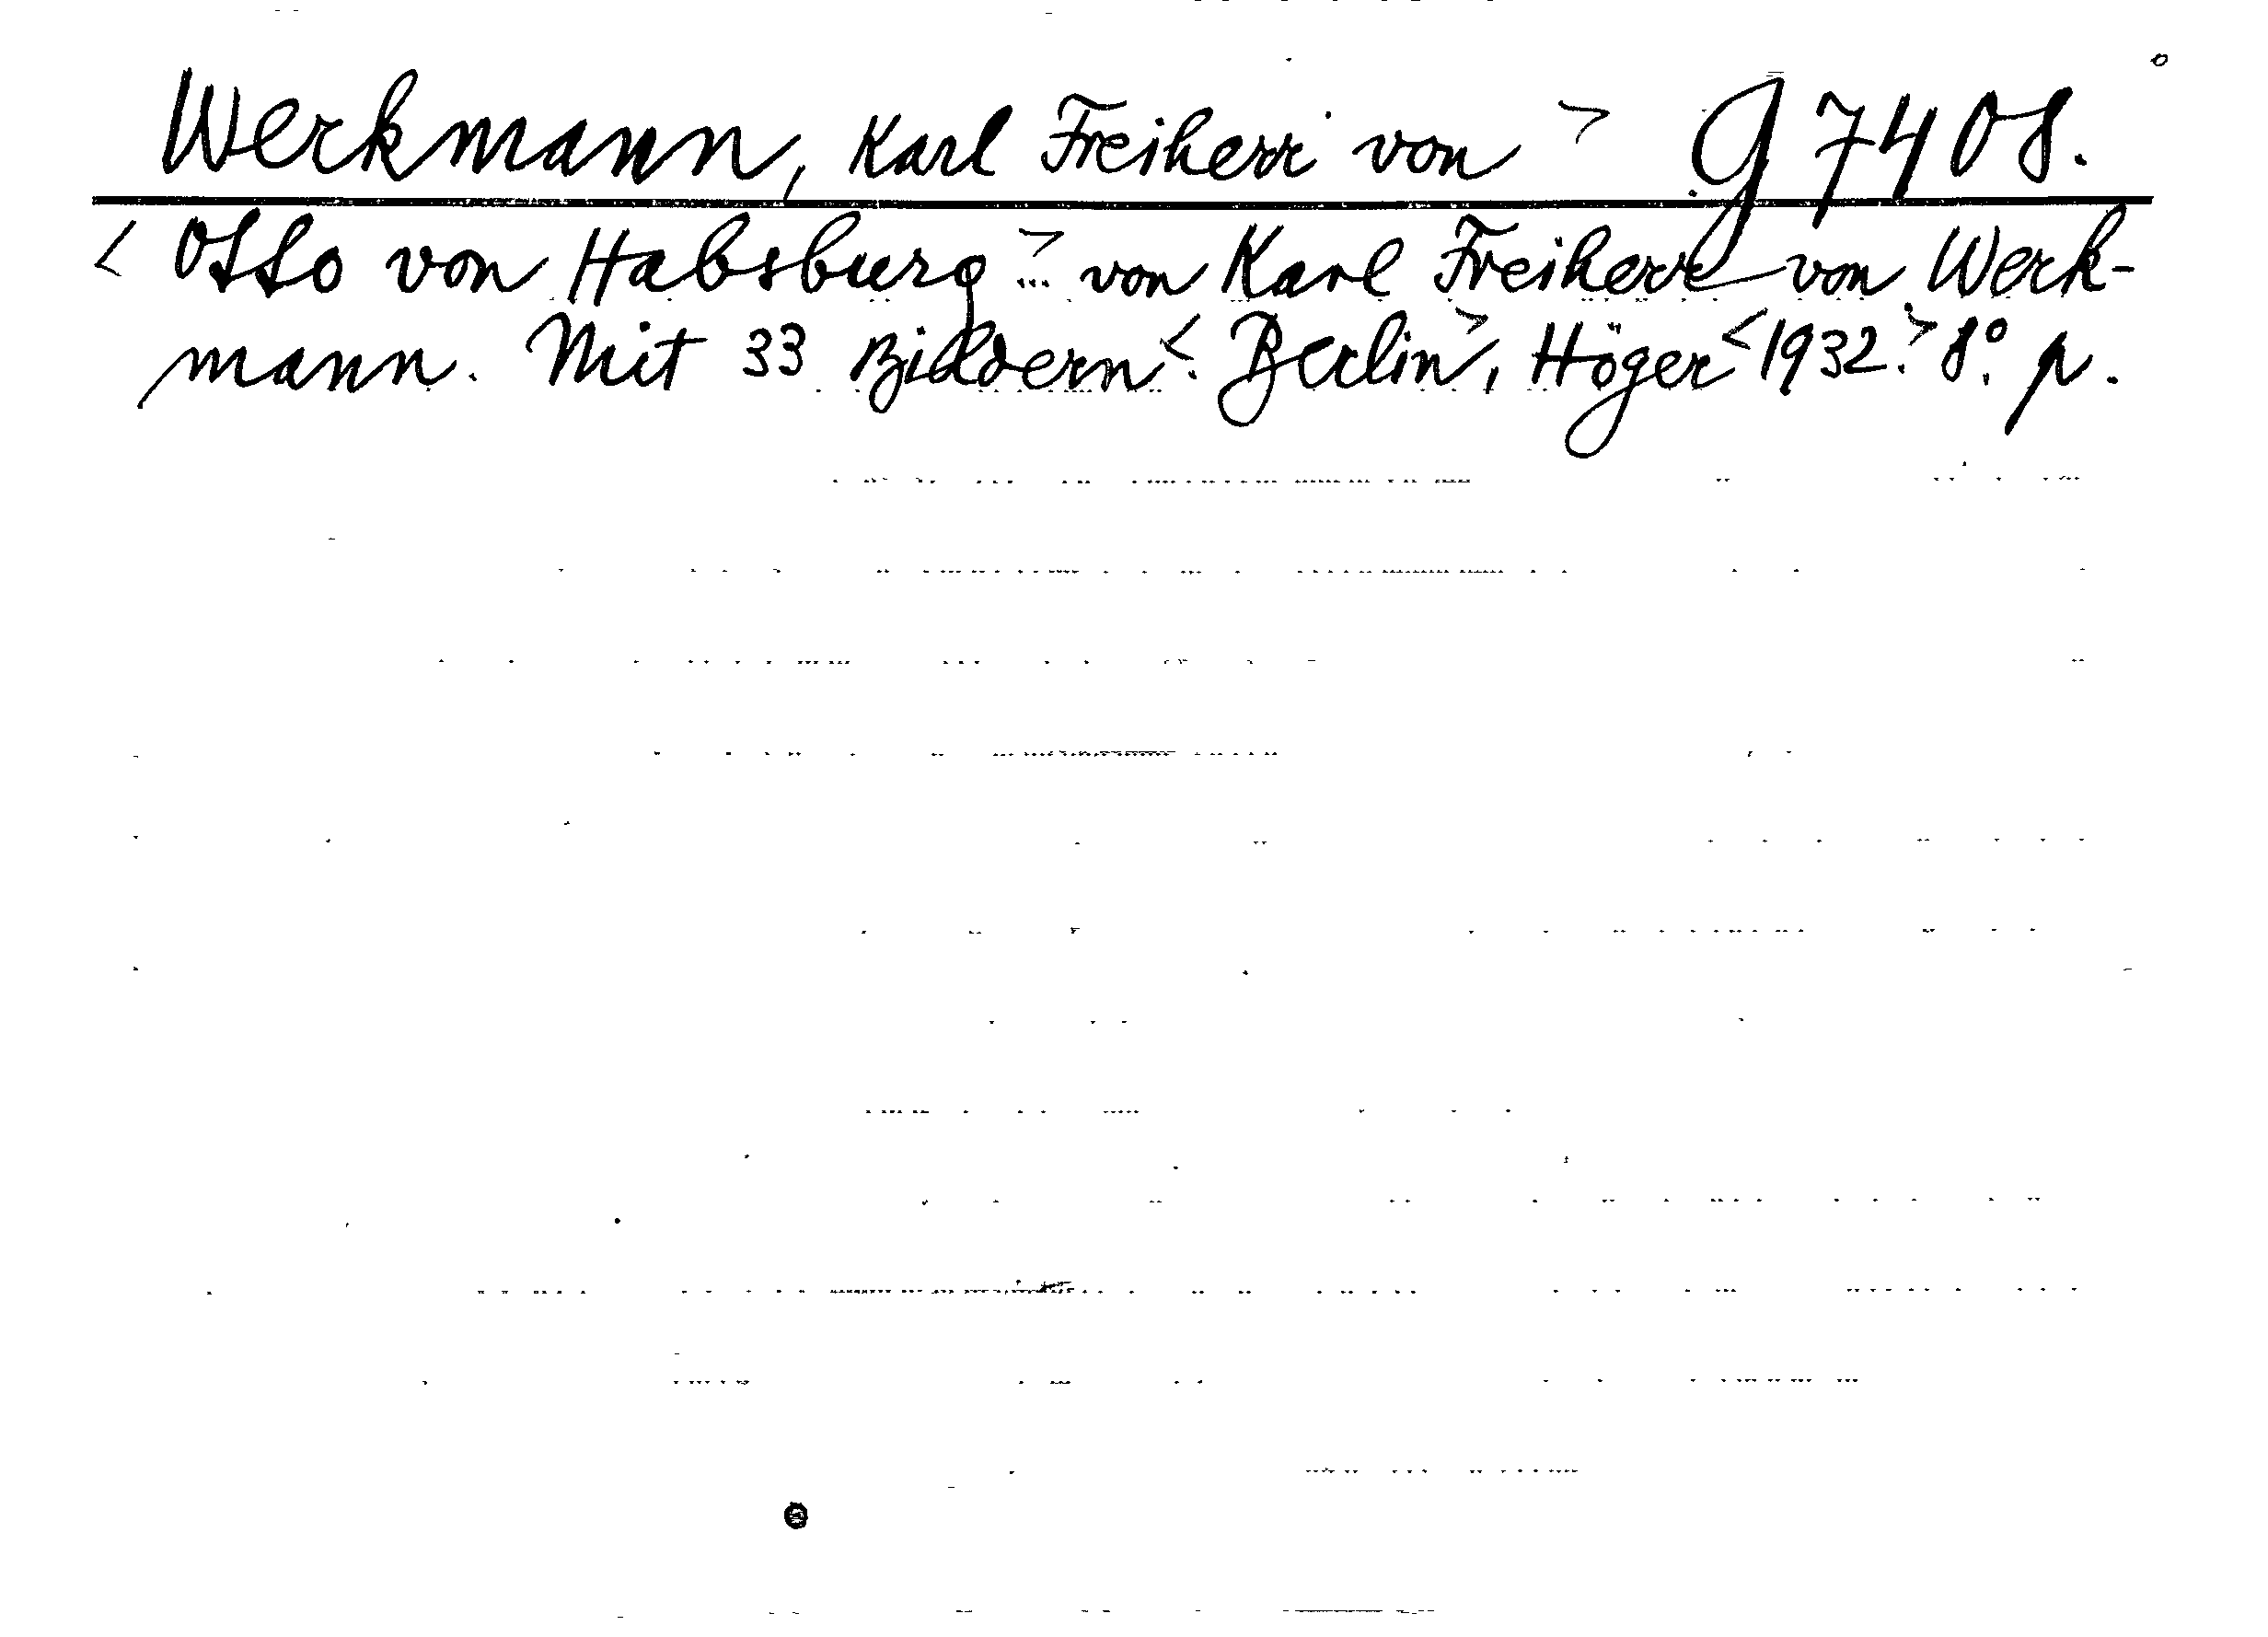 Werkmann, Karl Freiherr von > G 7408.
< Otto von Habsburg > ... von Karl Freiherr von Werk-
mann. Mit 33 Bildern <. Berlin >, Höger < 1932. > 8°. p.